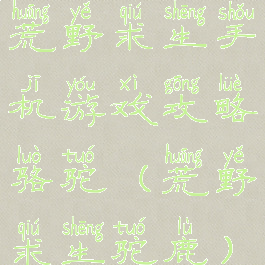 huāng yě qiú shēng shǒu
荒野求生手
jī yóu xì gōng lüè
机游戏攻略
luò tuó huāng yě
骆驼（荒野
qiú shēng tuó lù
求生驼鹿）